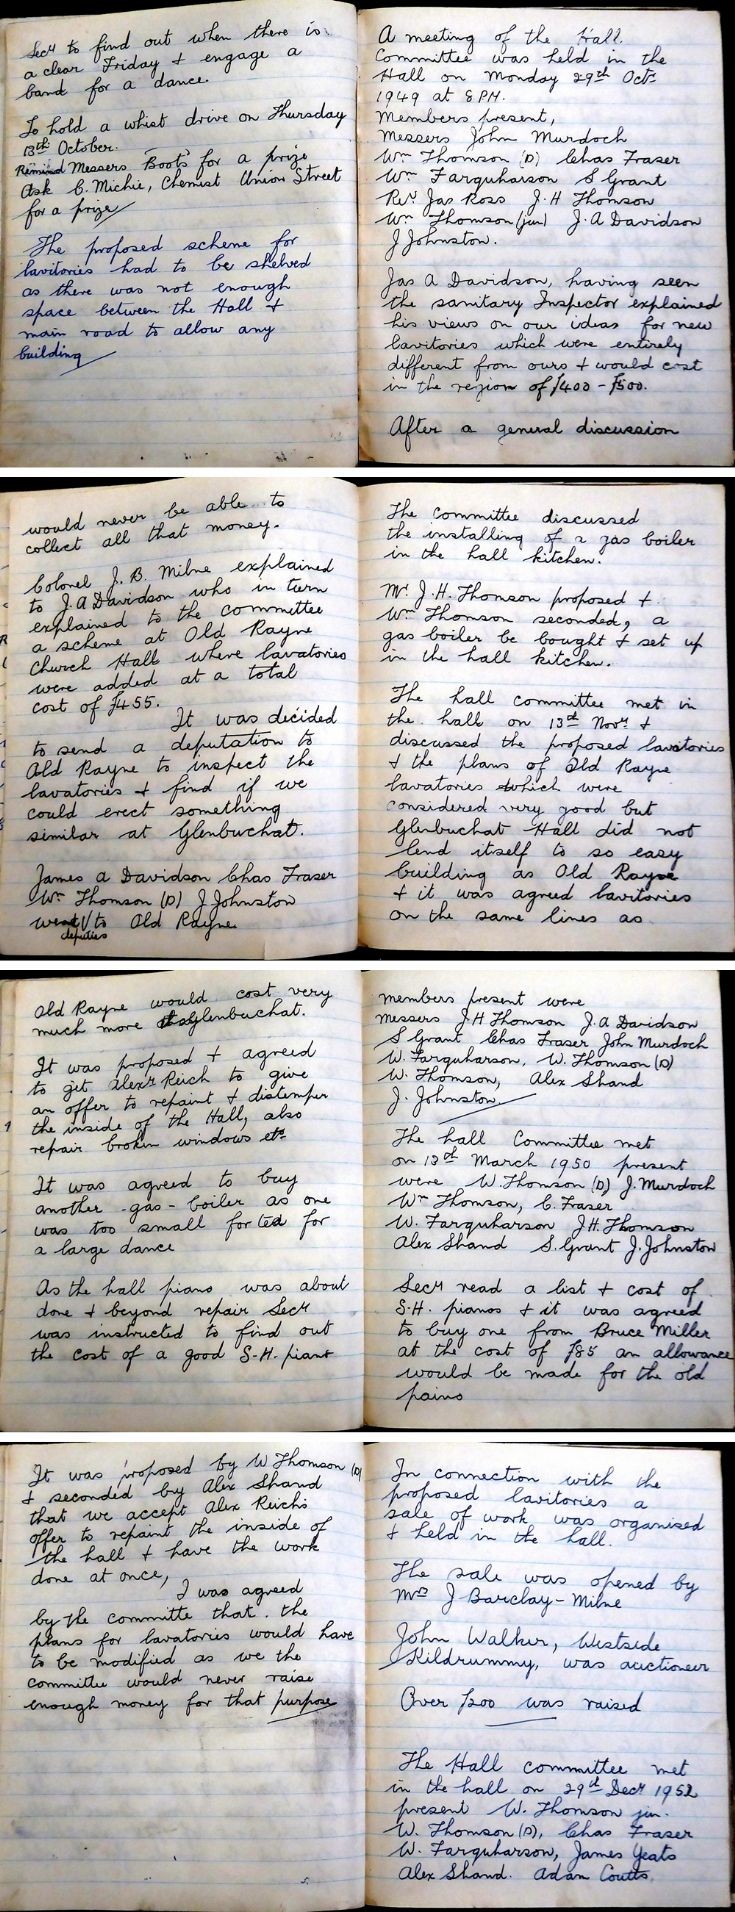 Secy to find out when there is
a clear Friday + engage a
band for a dance.
To hold a whist drive on Thursday
13th October.
Remind Messers Boots for a prize
Ask C. Michie, Chemist Union Street
for a prize
The proposed scheme for
lavitories had to be shelved
as there was not enough
space between the Hall +
main road to allow any
building
A meeting of the Hall
Committee was held in the
Hall on Monday 29th Oct
1949 at 8 P.M.
Members present,
Messers John Murdoch
Wm Thomson (D) Chas Fraser
Wm Farquharson S Grant
Rev Jas Ross J. H Thomson
Wm Thomson (jun) J. A Davidson
J Johnston.
Jas A Davidson, having seen
the sanitary Inspector explained
his views on our ideas for new
lavitories which were entirely
different from ours + would cost
in the region of £400 - £500.
After a general discussion
would never be able to
collect all that money.
Colonel J. B. Milne explained
to J. A Davidson who in turn
explained to the committee
a scheme at Old Rayne
Church Hall where lavatories
were added at a total
cost of £455.
It was decided
to send a deputation to
Old Rayne to inspect the
lavatories + find if we
could erect something
similar at Glenbuchat.
James A Davidson Chas Fraser
Wm Thomson (D) J Johnston
went to Old Rayne
deputies
The committee discussed
the installing of a gas boiler
in the hall kitchen.
Mr J. H. Thomson proposed +
Wm Thomson seconded, a
gas boiler be bought + set up
in the hall kitchen.
The hall committee met in
the hall on 13th Novr +
discussed the proposed lavitories
+ the plans of Old Rayne
lavatories which were
considered very good but
Glenbuchat Hall did not
lend itself to so easy
building as Old Rayne
+ it was agreed lavitories
on the same lines as
Old Rayne would cost very
much more Glenbuchat.
It was proposed + agreed
to get Alexr Reich to give
an offer to repaint + distemper
the inside of the Hall, also
repair broken windows etc
It was agreed to buy
another gas-boiler as one
was too small for tea for
a large dance
As the hall piano was about
done + beyond repair Secy
was instructed to find out
the cost of a good S-H. piano
members present were
Messers J H Thomson J. A Davidson
S Grant Chas Fraser John Murdoch
W. Farquharson, W. Thomson (D)
W. Thomson, Alex Shand
J. Johnston.
The hall Committee met
on 13th March 1950 present
were W. Thomson (D) J. Murdoch
Wm Thomson, C. Fraser
W. Farquharson J. H. Thomson
Alex Shand S. Grant J. Johnston
Secy read a list + cost of
S.H. pianos + it was agreed
to buy one from Bruce Miller
at the cost of £85 an allowance
would be made for the old
paino
It was proposed by W Thomson (D)
+ seconded by Alex Shand
that we accept Alex Reich's
offer to repaint the inside of
the hall + have the work
done at once,
I was agreed
by the committe that the
plans for lavatories would have
to be modified as we the
committee would never raise
enough money for that purpose
In connection with the
proposed lavitories a
sale of work was organised
+ held in the hall.
The sale was opened by
Mrs J Barclay-Milne
John Walker, Westside
Kildrummy, was auctioneer
Over £200 was raised
The Hall committee met
in the hall on 29th Decr 1952
present W. Thomson jun.
W. Thomson (D), Chas Fraser
W. Farquharson, James Yeats
Alex Shand. Adan Coutts